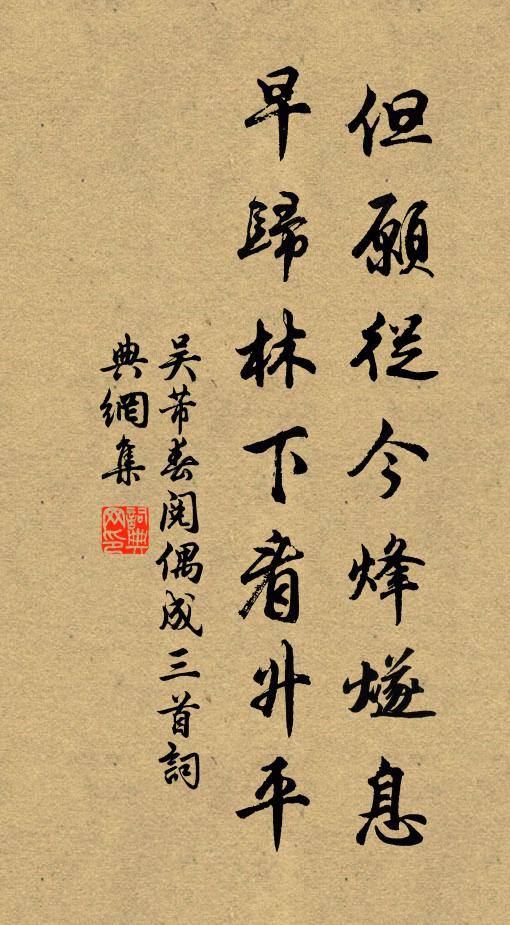 但願從今烽燧息
早歸林下看升平
吴芾春闋偶成三首詞
典網集
詞典
网印